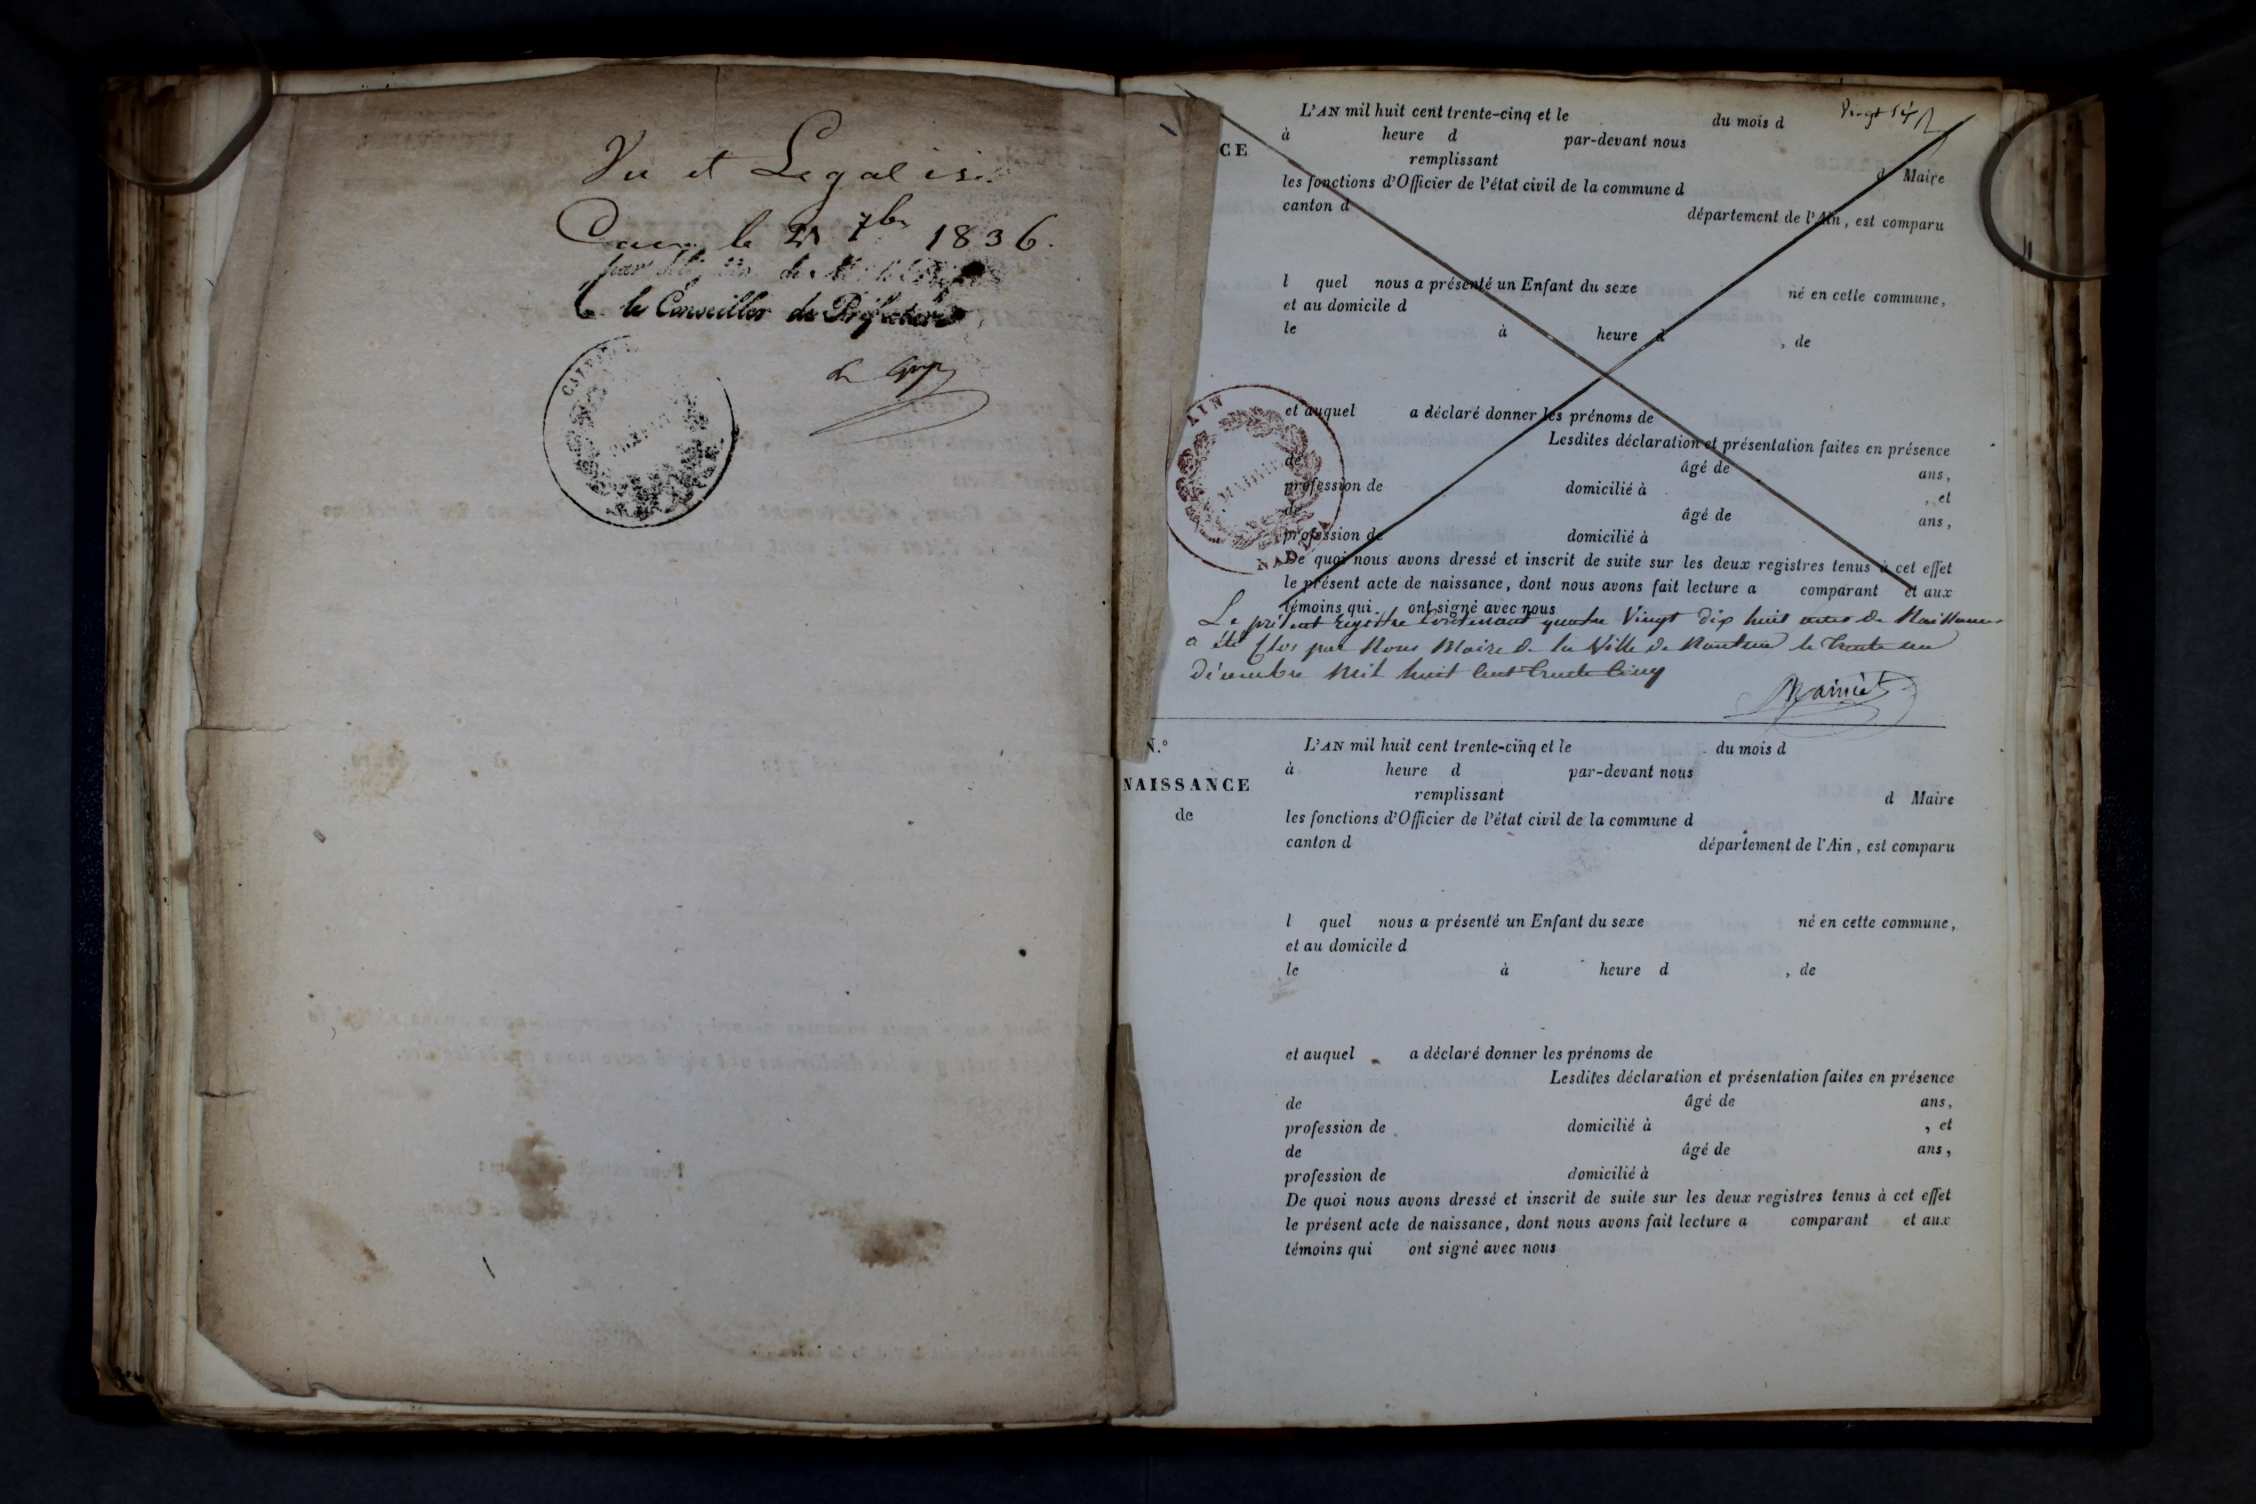 Vu et Legalisé
Caen, le 21 7bre 1836.
le Conseiller de Préfecture,
CALVADOS
Vingt Sept
L'AN mil huit cent trente-cinq et le du mois d
à heure d par-devant nous
CE
remplissant d Maire
les fonctions d'Officier de l'état civil de la commune d
canton d département de l'Ain, est comparu
l quel nous a présenté un Enfant du sexe né en cette commune,
et au domicile d
le à heure d , de
et auquel a déclaré donner les prénoms de
Lesdites déclaration et présentation faites en présence
de âgé de ans,
profession de domicilié à , et
de âgé de ans,
profession de domicilié à
De quoi nous avons dressé et inscrit de suite sur les deux registres tenus à cet effet
le présent acte de naissance, dont nous avons fait lecture a comparant et aux
témoins qui ont signé avec nous
AIN
MAIRIE
NANTUA
Le présent registre Contenant quatre Vingt dix huit actes de Naissances
a été Clos par Nous Maire de la Ville de Nantua le trente un
Décembre Mil huit Cent trente Cinq
N.°
NAISSANCE
de
L'AN mil huit cent trente-cinq et le du mois d
à heure d par-devant nous
remplissant d Maire
les fonctions d'Officier de l'état civil de la commune d
canton d département de l'Ain, est comparu
l quel nous a présenté un Enfant du sexe né en cette commune,
et au domicile d
le à heure d , de
et auquel a déclaré donner les prénoms de
Lesdites déclaration et présentation faites en présence
de âgé de ans,
profession de domicilié à , et
de âgé de ans,
profession de domicilié à
De quoi nous avons dressé et inscrit de suite sur les deux registres tenus à cet effet
le présent acte de naissance, dont nous avons fait lecture a comparant et aux
témoins qui ont signé avec nous